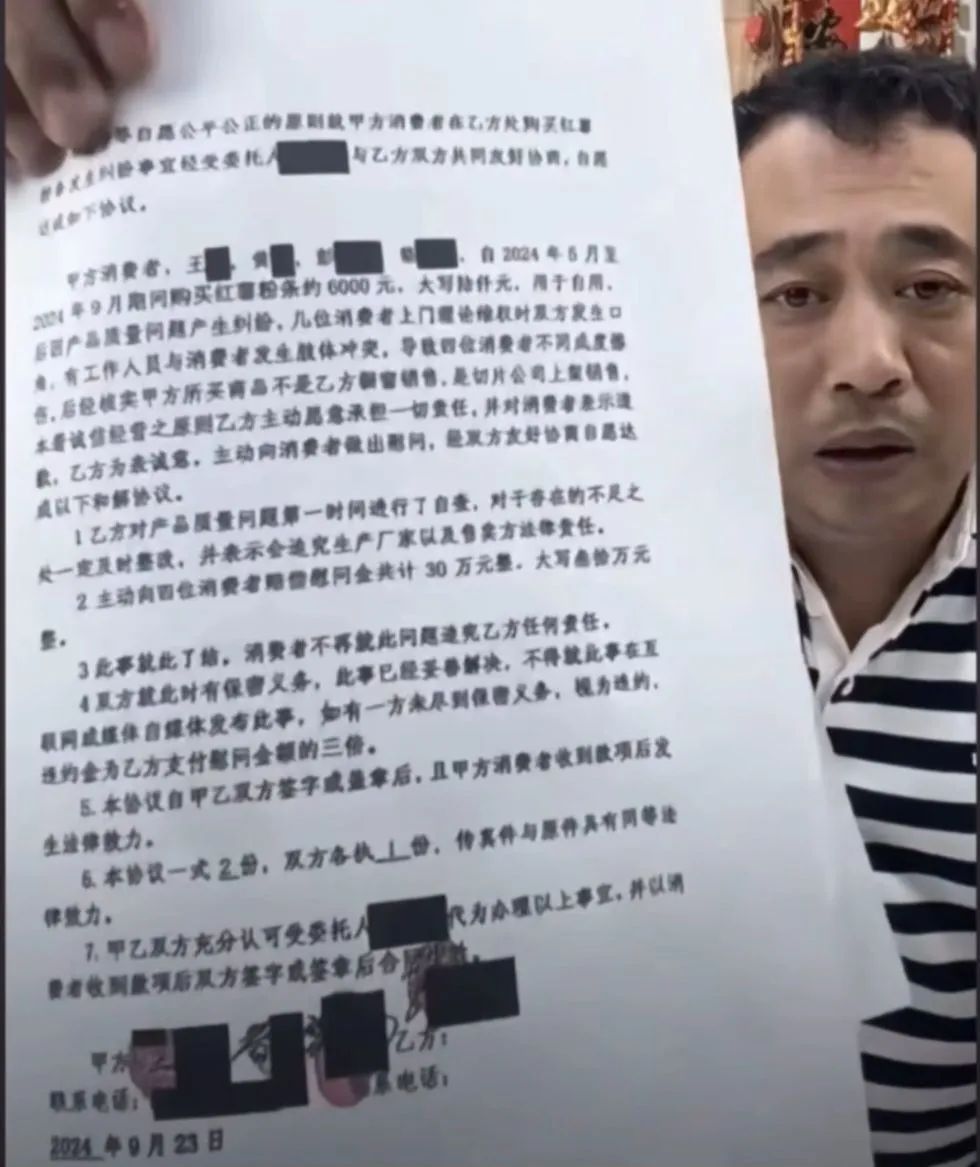 等自愿公平公正的原则就甲方消费者在乙方处购买红薯
粉条发生纠纷事宜经受委托人 与乙方双方共同友好协商，自愿
达成如下协议。
甲方消费者，王 ，黄 ，彭 ， ，自2024年5月至
2024年9月期间购买红薯粉条约6000元，大写陆仟元，用于自用，
后因产品质量问题产生纠纷，几位消费者上门理论维权时双方发生口
角，有工作人员与消费者发生肢体冲突，导致四位消费者不同成度伤
害，后经核实甲方所买商品不是乙方橱窗销售，是切片公司上架销售，
本着诚信经营之原则乙方主动愿意承担一切责任，并对消费者表示道
歉，乙方为表诚意，主动向消费者做出慰问，经双方友好协商自愿达
成以下和解协议。
1乙方对产品质量问题第一时间进行了自查，对于存在的不足之
处一定及时整改，并表示会追究生产厂家以及售卖方法律责任。
2主动向四位消费者赔偿慰问金共计30万元整，大写叁拾万元
整。
3此事就此了结，消费者不再就此问题追究乙方任何责任。
4双方就此时有保密义务，此事已经妥善解决，不得就此事在互
联网或媒体自媒体发布此事，如有一方未尽到保密义务，视为违约，
违约金为乙方支付慰问金额的三倍。
5.本协议自甲乙双方签字或盖章后，且甲方消费者收到款项后发
生法律效力。
6.本协议一式2份，双方各执1份，传真件与原件具有同等法
律效力。
7.甲乙双方充分认可受委托人 代为办理以上事宜，并以消
费者收到款项后双方签字或签章后合同
甲方 乙方：
联系电话： 系电话：
2024年9月23日